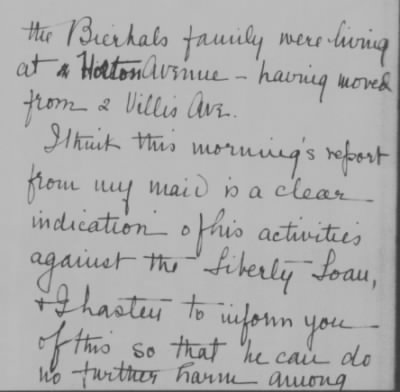 the Bierhals family were living
at Holton Avenue - having moved
from 2 Villis Ave.
I think this morning's report
from my maid is a clear
indication of his activities
against the Liberty Loan,
& I hasten to inform you
of this so that he can do
no further harm among